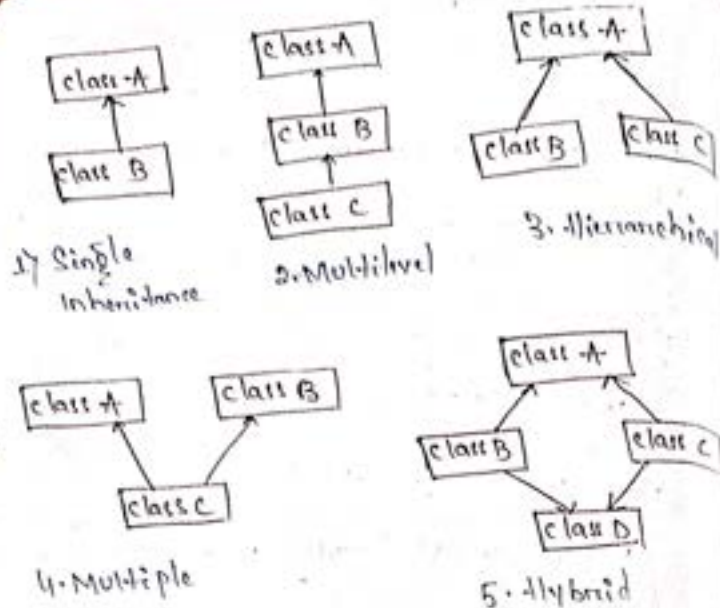 class A
class B
1) Single
Inheritance
class A
class B
class C
2. Multilevel
class A
class B
class C
3. Hierarchical
class A
class B
class C
4. Multiple
class A
class B
class C
class D
5. Hybrid